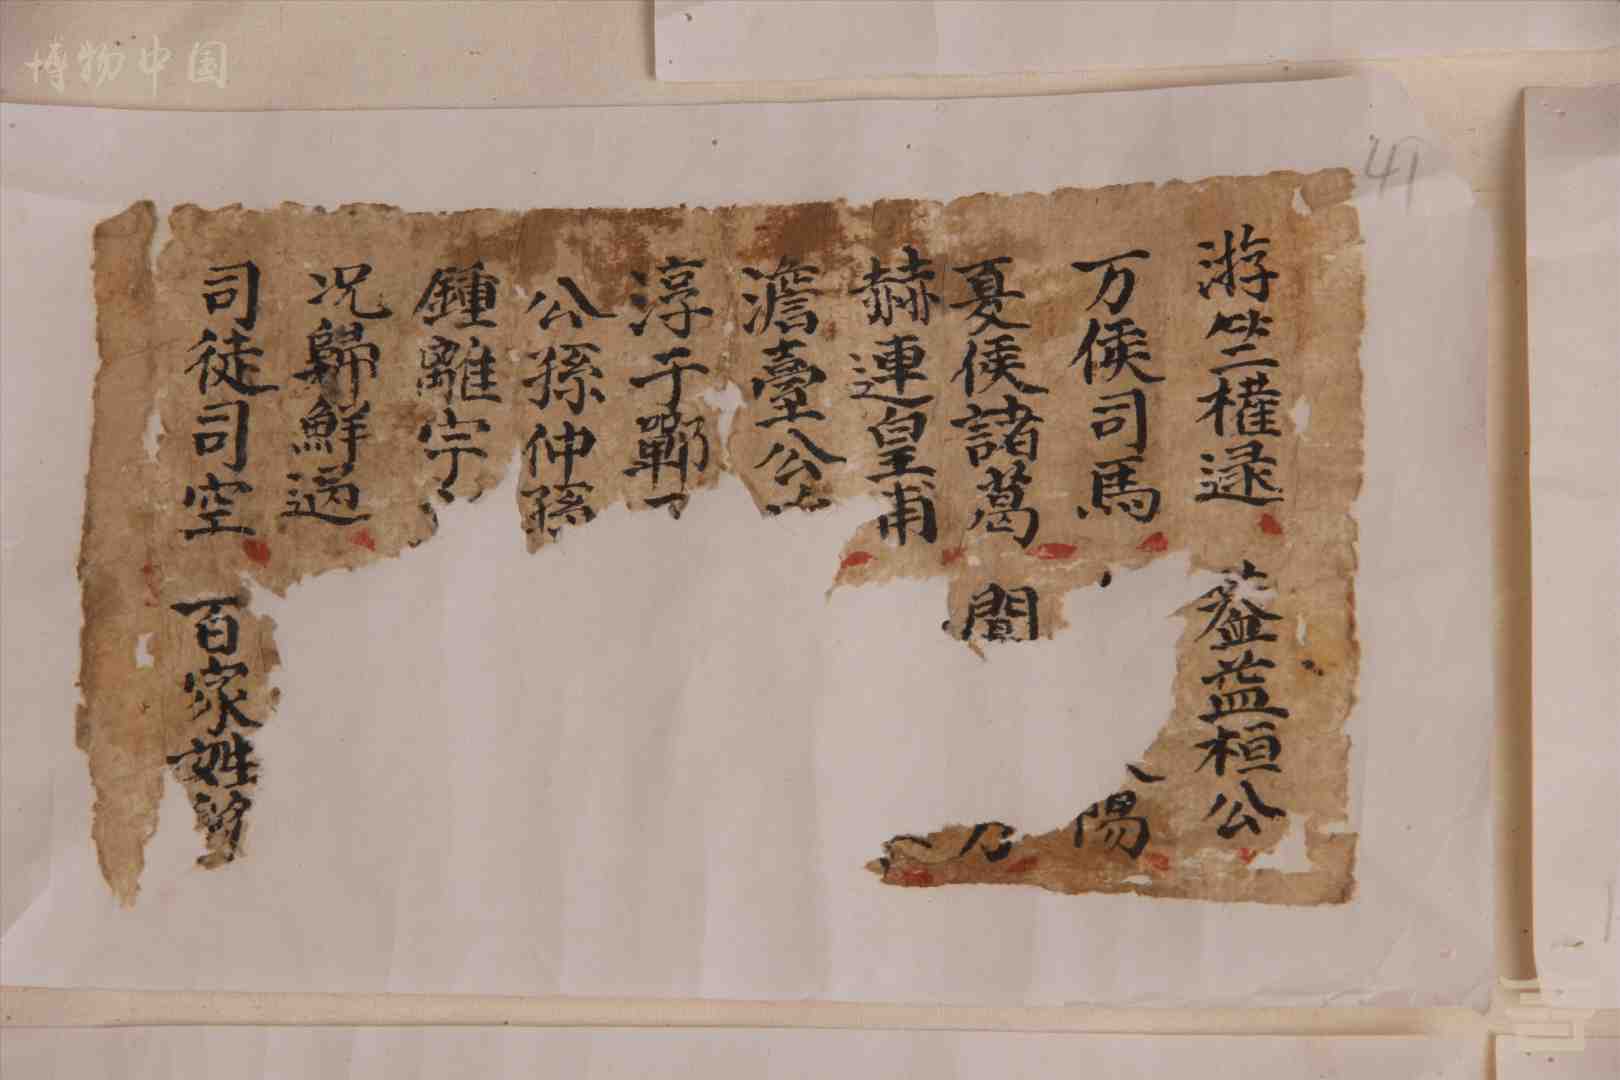 博物中国
49
游竺權逯 葢益桓公
万俟司馬 陽
夏侯諸葛 聞
赫連皇甫
澹臺公
淳于鄆
公孫仲孫
鍾離宇
況郈鮮過
司徒司空 百家姓